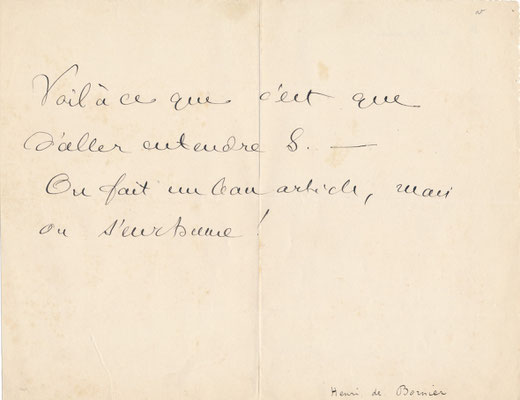 Voilà ce que c'est que
d'aller entendre S. —
On fait un beau article, mais
on s'enrhume !
Henri de Bornier